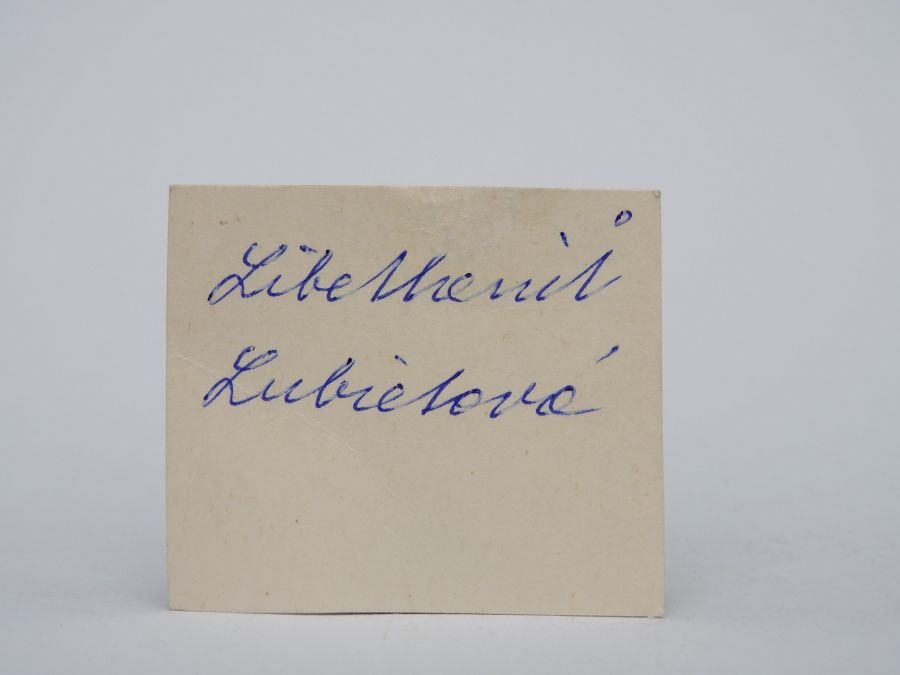 Libethenit
Lubietová